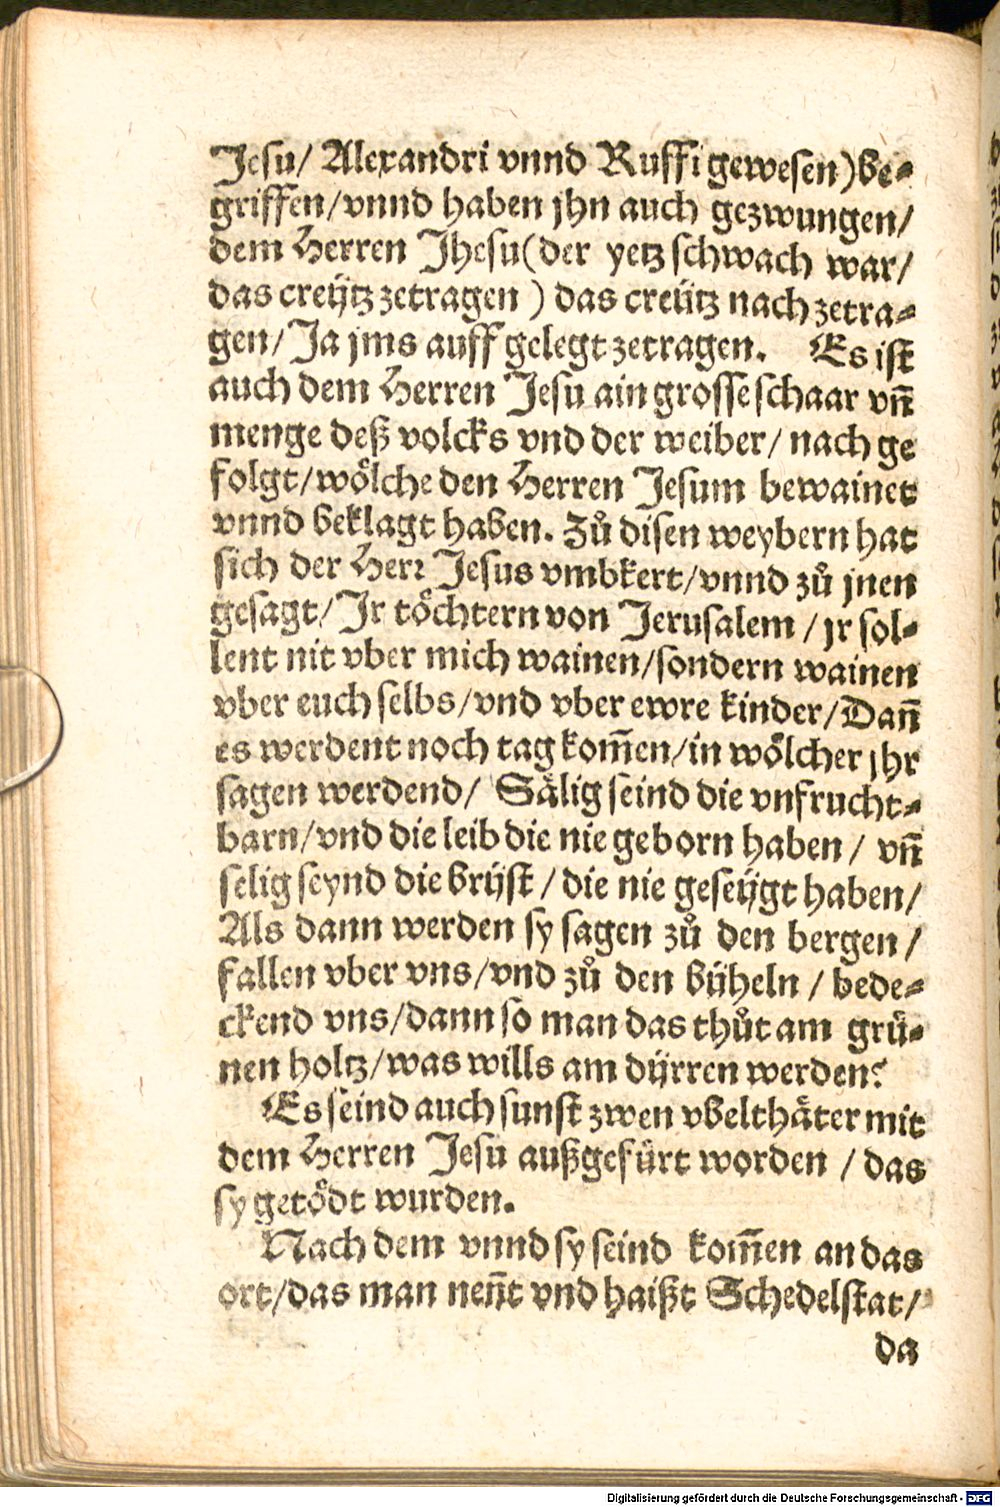 Jesu/ Alexandri vnnd Ruffi gewesen) be-
griffen/vnnd haben jhn auch gezwungen/
dem Herren Jhesu (der yetz schwach war/
das creütz zetragen) das creütz nach zetra-
gen/ Ja jms auff gelegt zetragen. Es ist
auch dem Herren Jesu ain grosse schaar vñ
menge deß volcks vnd der weiber/ nach ge
folgt/wölche den Herren Jesum bewainet
vnnd beklagt haben. Zů disen weybern hat
sich der Herr Jesus vmbkert/vnnd zů jnen
gesagt/ Jr töchtern von Jerusalem/ jr sol-
lent nit vber mich wainen/sondern wainen
vber euch selbs/vnd vber ewre kinder/Dañ
es werdent noch tag kom̃en/in wölcher jhr
sagen werdend/ Sälig seind die vnfrucht-
barn/vnd die leib die nie geborn haben/ vñ
selig seynd die brüst/ die nie geseügt haben/
Als dann werden sy sagen zů den bergen/
fallen vber vns/vnd zů den büheln/ bede-
ckend vns/dann so man das thůt am grü-
nen holtz/was wills am dürren werden?
Es seind auch sunst zwen vbelthäter mit
dem Herren Jesu außgefürt worden/ das
sy getödt wurden.
Nach dem vnnd sy seind kom̃en an das
ort/das man neñt vnd haißt Schedelstat/
da
Digitalisierung gefördert durch die Deutsche Forschungsgemeinschaft - DFG